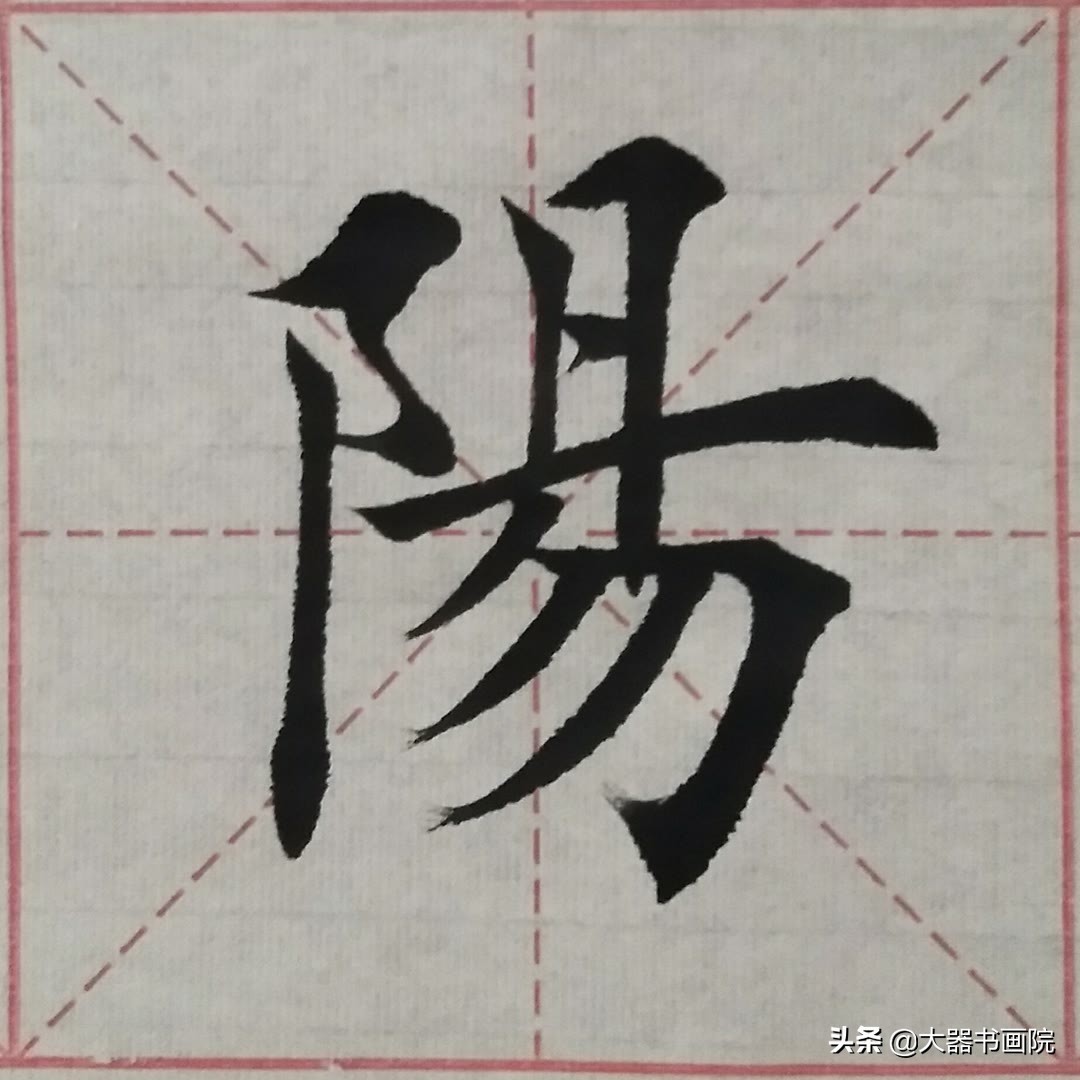 陽
头条 @大器书画院